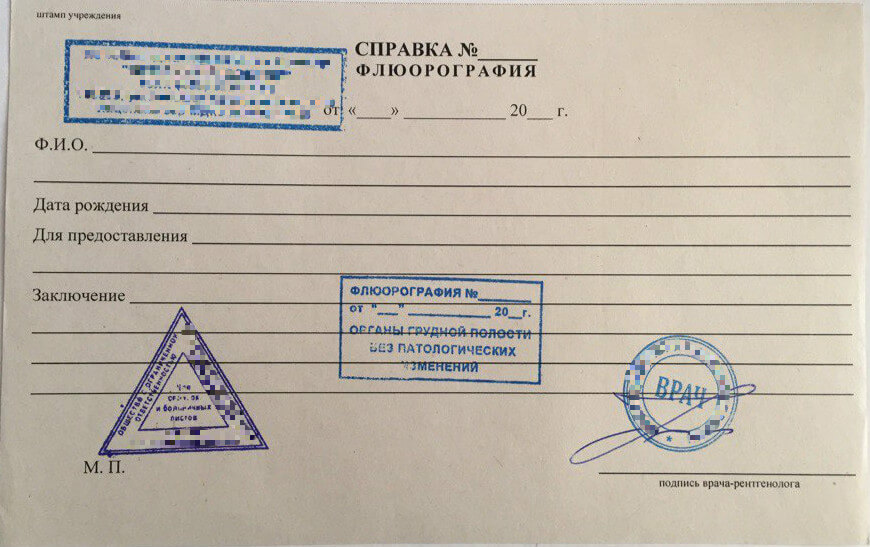 штамп учреждения
СПРАВКА №______
ФЛЮОРОГРАФИЯ
от «____» ____________ 20___ г.
Ф.И.О.
Дата рождения
Для предоставления
Заключение
ФЛЮОРОГРАФИЯ №________
от "___" ____________ 20__г.
ОРГАНЫ ГРУДНОЙ ПОЛОСТИ
БЕЗ ПАТОЛОГИЧЕСКИХ
ИЗМЕНЕНИЙ
ОБЩЕСТВО С ОГРАНИЧЕННОЙ
ОТВЕТСТВЕННОСТЬЮ
и больничных
листов
ВРАЧ
М. П.
подпись врача-рентгенолога